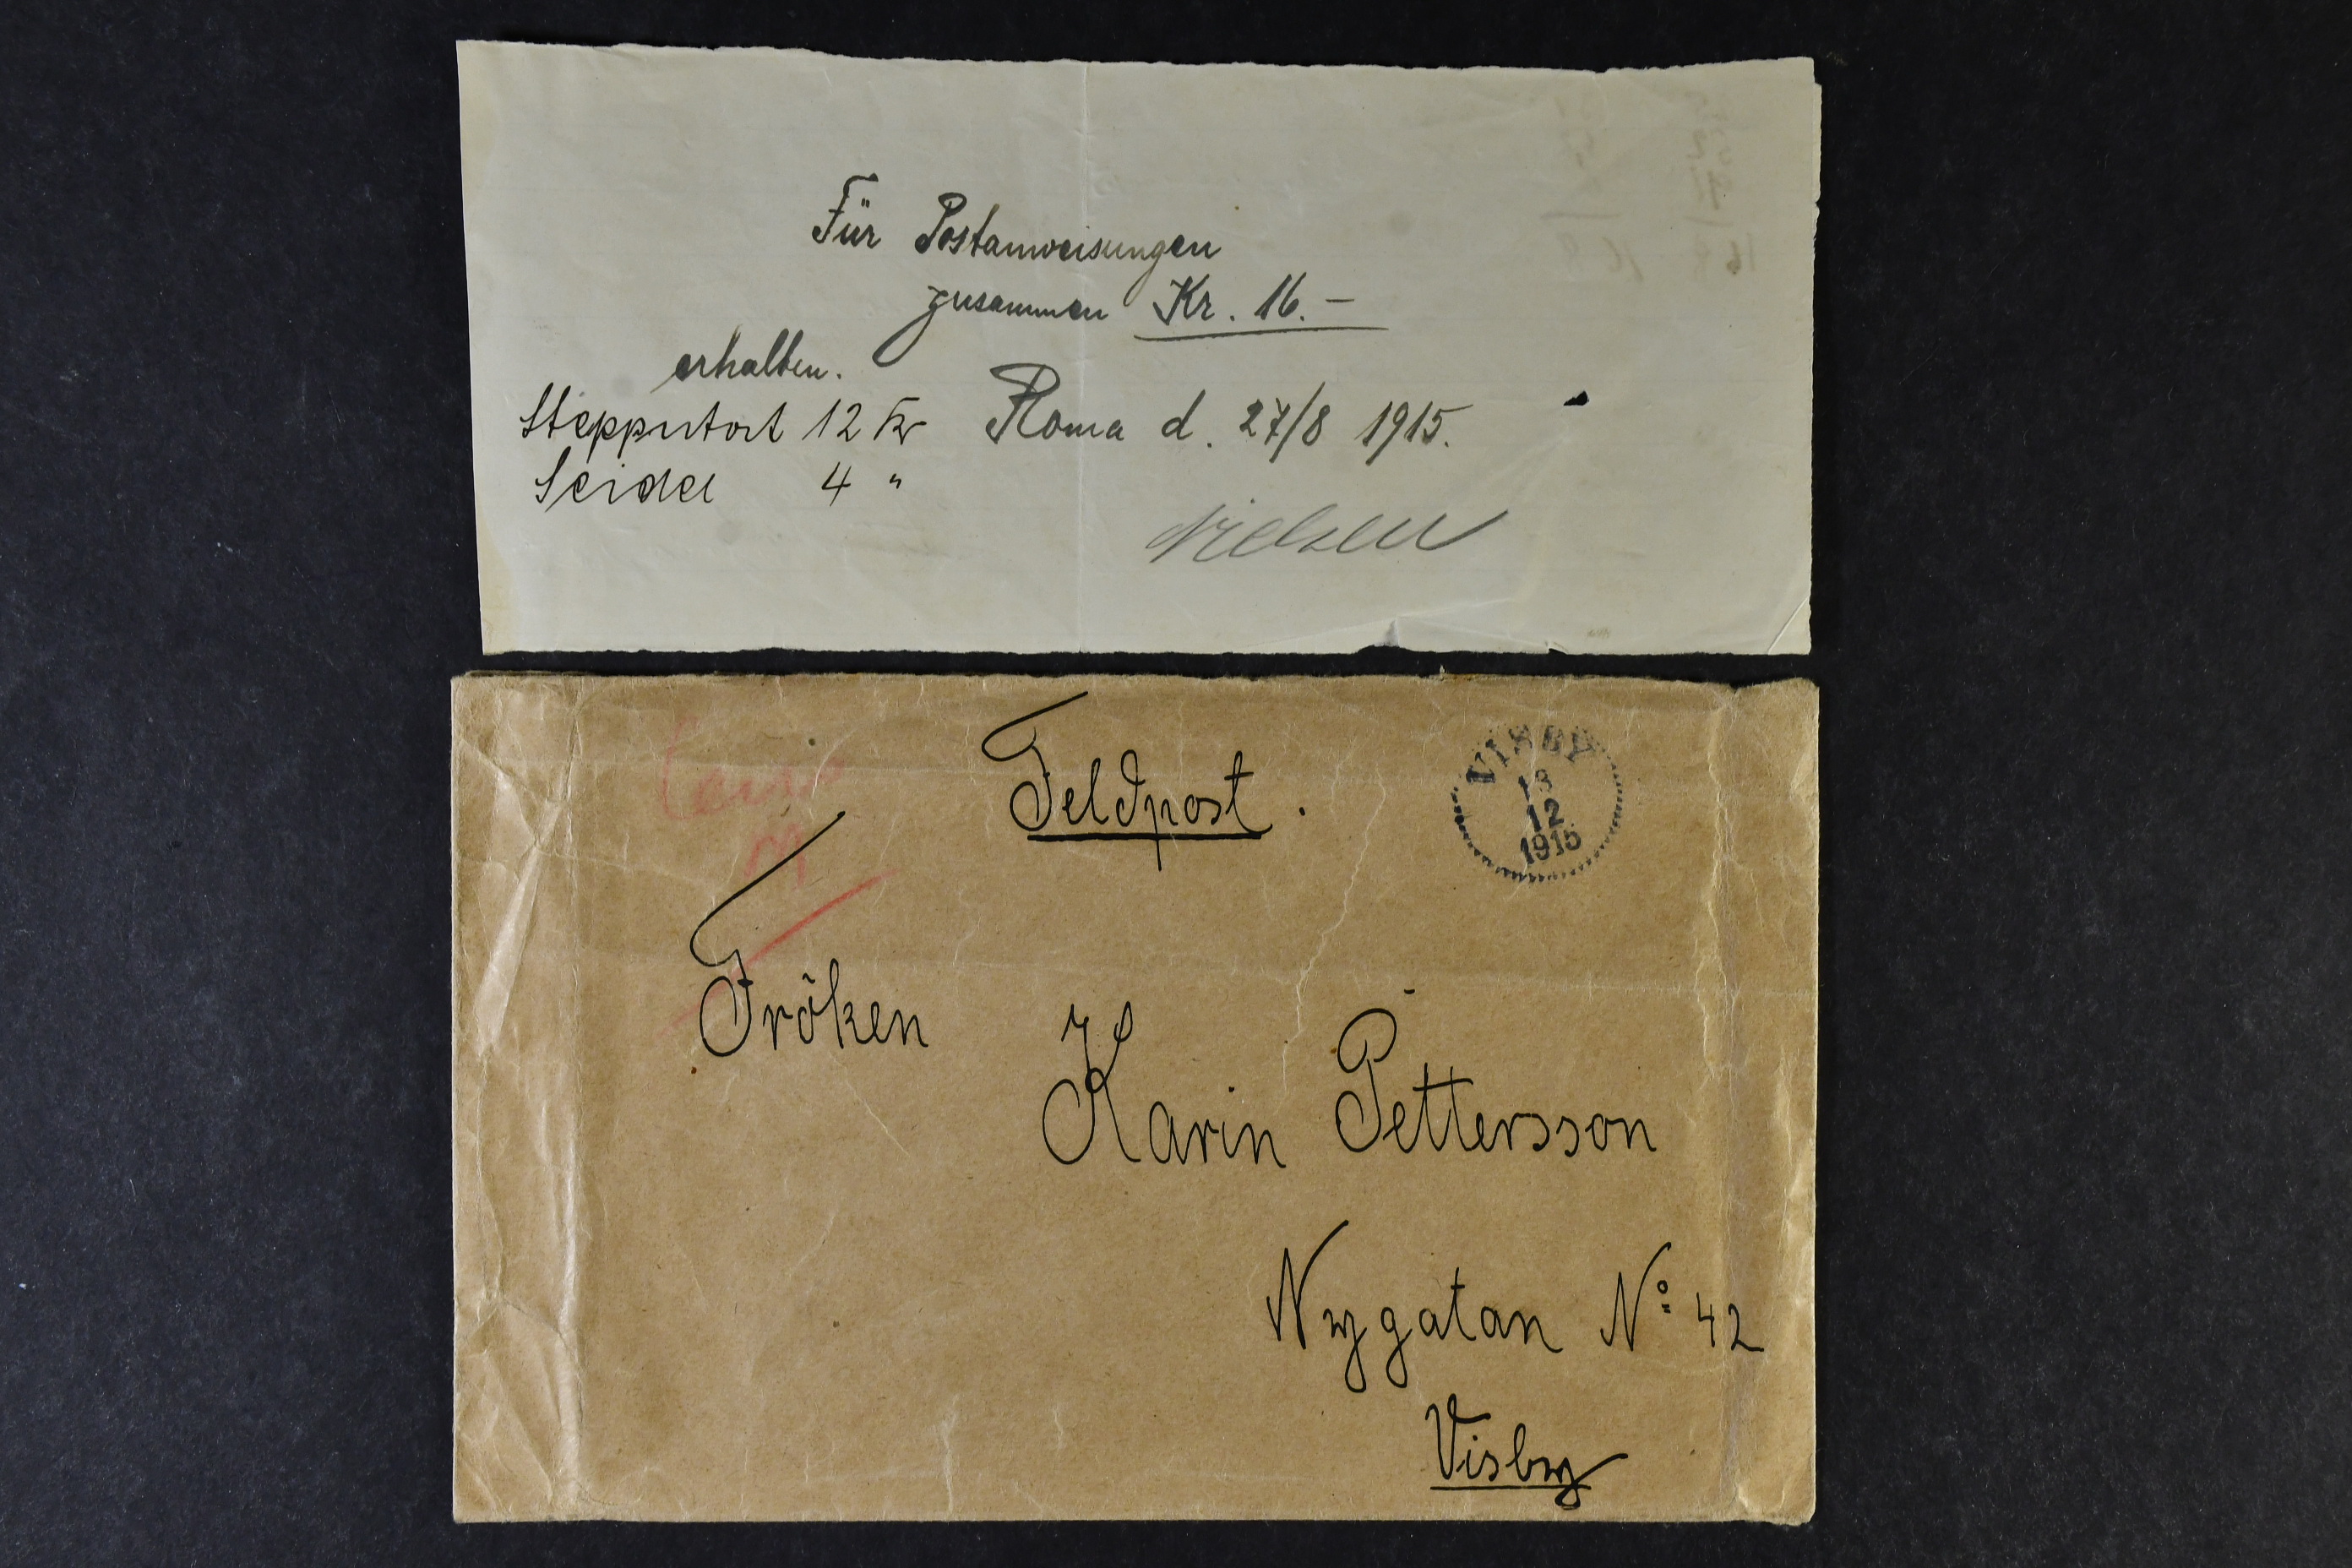 Für Postanweisungen
zusammen Kr. 16.-
erhalten.
Stepputat 12 Kr Roma d. 27/8 1915.
Seidel 4 "
Nielsen
Feldpost.
VISBY
13
12
1915
Fröken
Karin Pettersson
Nygatan No 42
Visby